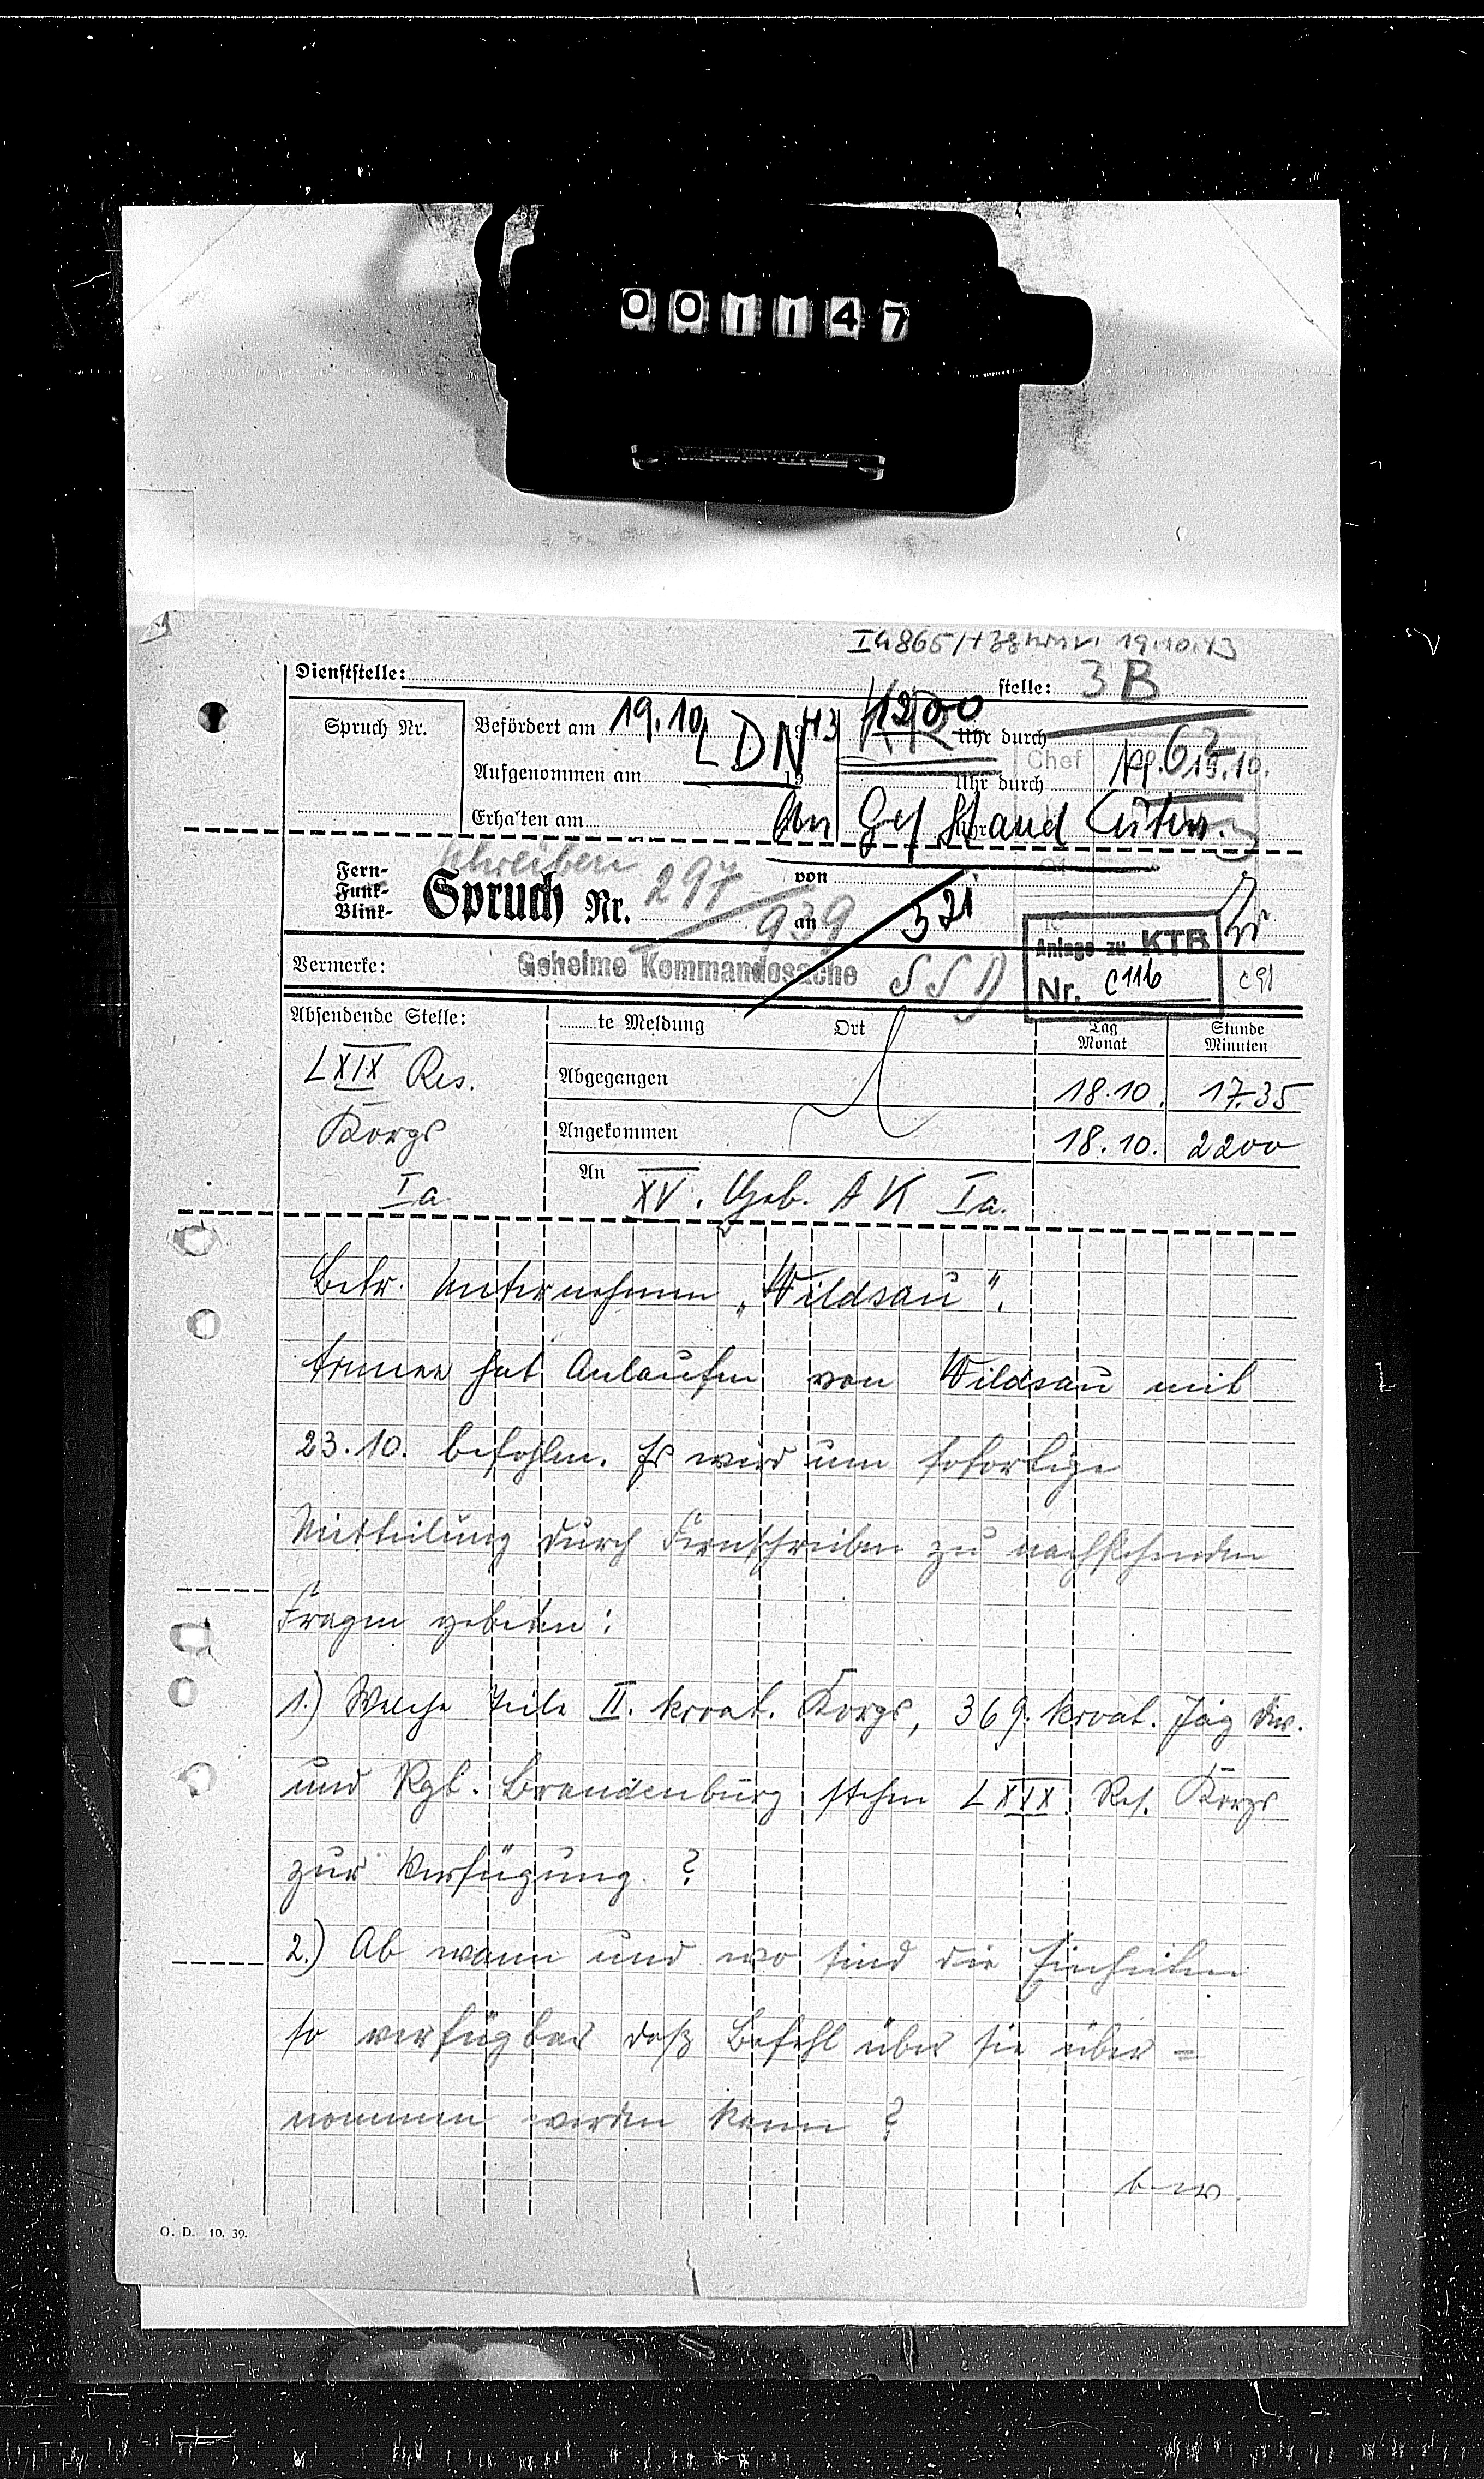 001147
Ia 865/43 19.10.43
Dienststelle: stelle: 3 B
Spruch Nr.
Befördert am 19.10. 43 1200 Uhr durch
LDN
Aufgenommen am 19 Uhr durch
Chef 19.10.
Erhalten am
An Gef Stand
Fern-
Funk-
Blink-
schreiben
Spruch Nr. 297
939
von
an 321
Anlage zu KTB
Nr. C 116
c 91
Vermerke: Geheime Kommandosache SSD
Absendende Stelle:
LXIX Res.
Korps
Ia
te Meldung Ort Tag Monat Stunde Minuten
Abgegangen 18.10. 17.35
Angekommen 18.10. 2200
An XV. Geb. A K Ia.
Betr. Unternehmen „Wildsau".
Armee hat Anlaufen von Wildsau mit
23.10. befohlen. Es wird um sofortige
Mitteilung durch Fernschreiben zu nachstehenden
Fragen gebeten:
1.) Welche Teile II. kroat. Korps, 369. kroat. Jäg Div.
und Rgt. Brandenburg stehen LXIX. Res. Korps
zur Verfügung ?
2.) Ab wann und wo sind die Einheiten
so verfügbar daß Befehl über sie über=
nommen werden kann ?
b. w.
O. D. 10. 39.